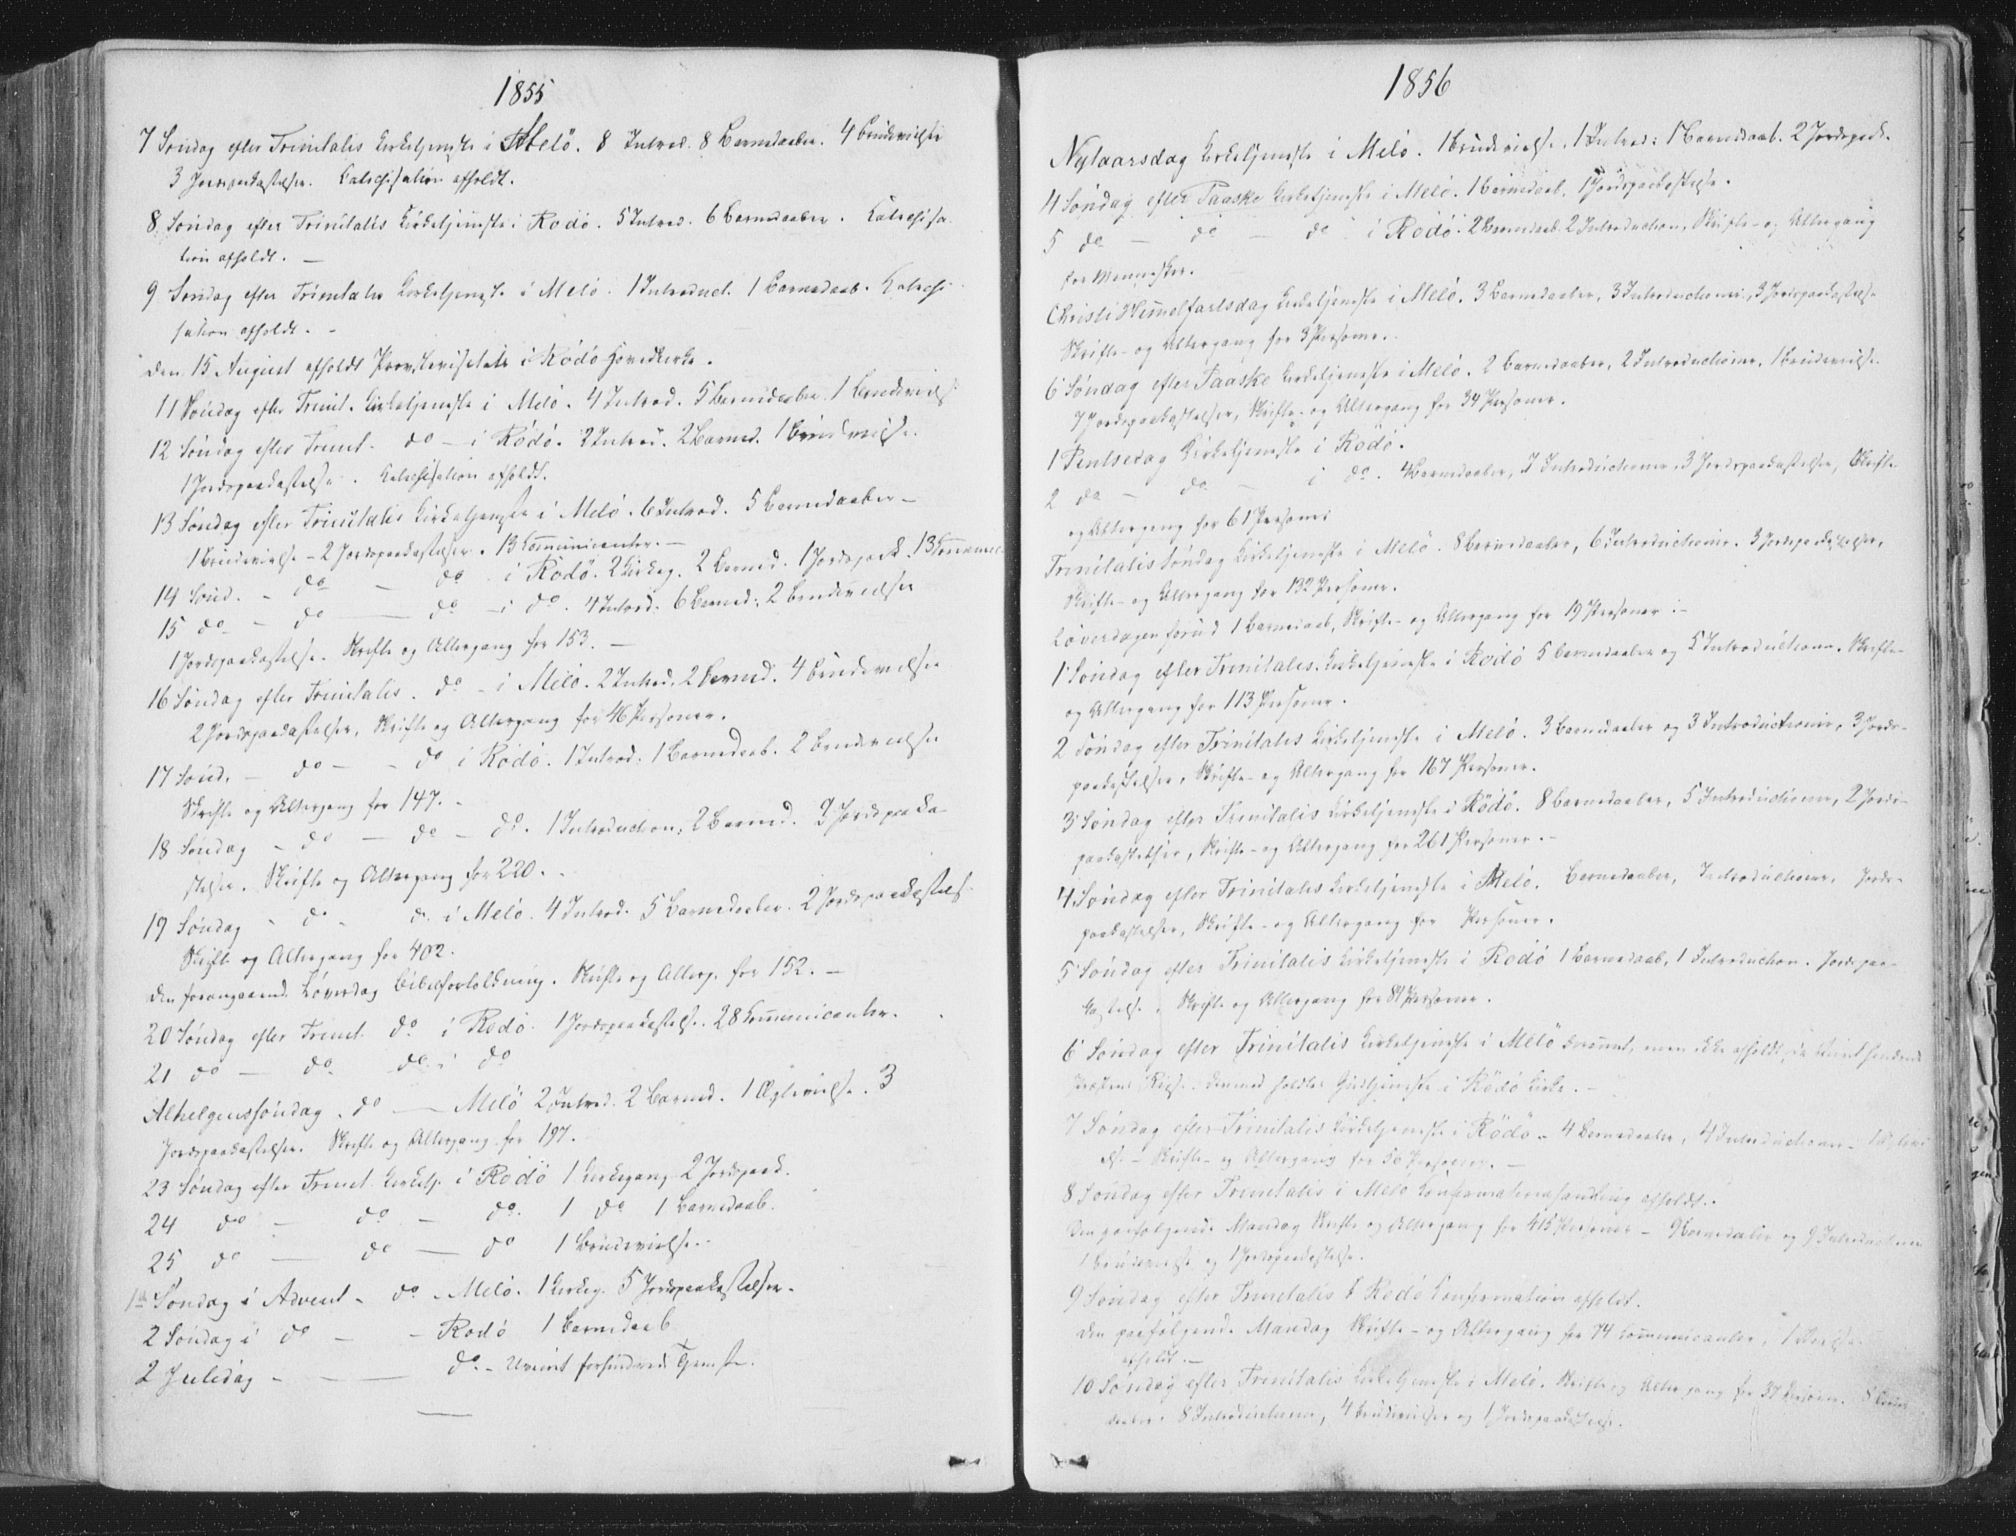 1855
7 Søndag efter Trinitatis Kirketjeneste i Melö. 8 Introd. 8 Barnedaaber. 4 Brudevielser
3 Jordpaakastelser. Catechisation afholdt.
8 Søndag efter Trinitatis Kirketjeneste i Rødø. 5 Introd. 6 Barnedaaber. Catechisa-
tion afholdt. —
9 Søndag efter Trinitatis Kirketjeneste i Melö. 1 Introduct. 1 Barnedaab. Catechi-
sation afholdt. -
Den 15 August afholdt Provstevisitats i Rödö Hovedkirke.
11 Søndag efter Trinit. Kirketjeneste i Melö. 4 Introd. 5 Barnedaaber. 1 Brudevielse
12 Søndag efter Trinit. do – i Rödö. 2 Introd. 2 Barned. 1 Brudevielse.
1 Jordpaakastelse. Catechisation afholdt.
13 Søndag efter Trinitatis Kirketjeneste i Melö. 6 Introd. 5 Barnedaaber –
1 Brudevielse – 2 Jordpaakastelser. 13 Communicanter. —
14 Sönd. - do — do i Rödö. 2 Kirkeg. 2 Barned. 1 Jordpaak. 13 Communic.
15 do – do — do – i do. 4 Introd: 6 Barned: 2 Brudevielser
1 Jordpaakastelse. Skrifte og Altergang for 153. —
16 Søndag efter Trinitatis. do – i Melö. 2 Introd. 2 Barned. 4 Brudevielser
2 Jordpaakastelser, Skrifte og Altergang for 46 Personer.
17 Sönd. — do — - do i Rödö. 1 Introd: 1 Barnedaab. 2 Brudevielser
Skrifte og Altergang for 147. -
18 Søndag - do — do – do. 1 Introduction, 2 Barned. 3 Jordpaaka-
stelser. Skrifte og Altergang for 220. -
19 Søndag - do - do. i Melö. 4 Introd. 5 Barnedaaber. 2 Jordpaakastels.
Skrifte og Altergang for 402.
Den foregaaende Løverdag Bibelfortolkning. Skrifte og Alterg. for 152. —
20 Søndag efter Trinit. do i Rödö. 1 Jordpaakastelse. 28 Communicanter.
21 do — do. do. i do
Alhelgenssöndag. do — Melö 2 Introd. 2 Barned. 1 Ægtevielse. 3
Jordpaakastelser. Skrifte og Altergang for 197.
23 Søndag efter Trinit. Kirketj. i Rödö 1 Kirkegang 2 Jordpaak.
24 do — do — do. 1 do 1 Barnedaab.
25 do — do — do 1 Brudevielse.
1ste Søndag i Advent - do - Melö. 1 Kirkeg. 5 Jordpaakastelser.
2 Søndag i do — - Rödö 1 Barnedaab
2 Juledag - — — do. - Uveir forhindrede Tjeneste.
1856
Nytaarsdag Kirketjeneste i Melö. 1 Brudevielse. 1 Introd: 1 Barnedaab. 2 Jordpaak.
4 Søndag efter Paaske Kirketjeneste i Melö. 1 Barnedaab. 1 Jordpaakastelse.
5 do — do — do i Rödö. 2 Barnedaab. 2 Introduction, Skrifte- og Altergang
for Mennesker.
Christi Himmelfartsdag Kirketjeneste i Melö. 3 Barnedaaber, 3 Introductioner, 3 Jordpaakastelse
Skrifte- og Altergang for 3 Personer.
6 Søndag efter Paaske Kirketjeneste i Melö. 2 Barnedaaber, 2 Introductioner, 1 Brudevielse
7 Jordpaakastelser, Skrifte- og Altergang for 34 Personer.
1 Pintsedag Kirketjeneste i Rödö.
2 do — do — i do. 4 Barnedaaber, 7 Introductioner, 3 Jordpaakastelser, Skrifte-
og Altergang for 61 Personer
Trinitatis Søndag Kirketjeneste i Melö. 8 Barnedaaber, 6 Introductioner. 3 Jordpaakastelser,
Skrifte- og Altergang for 132 Personer.
Løverdagen forud 1 Barnedaab, Skrifte- og Altergang for 19 Personer. –
1 Søndag efter Trinitatis. Kirketjeneste i Rödö 5 Barnedaaber og 5 Introductioner. Skrifte-
og Altergang for 113 Personer.
2 Søndag efter Trinitatis Kirketjeneste i Melö. 3 Barnedaaber og 3 Introductioner, 3 Jord-
paakastelser, Skrifte- og Altergang for 167 Personer.
3 Søndag efter Trinitatis Kirketjeneste i Rödö. 8 Barnedaaber, 5 Introductioner, 2 Jord-
paakastelser, Skrifte- og Altergang for 261 Personer. –
4 Søndag efter Trinitatis Kirketjeneste i Melö. Barnedaaber, Introductioner, Jord-
paakastelser, Skrifte- og Altergang for Personer.
5 Søndag efter Trinitatis Kirketjeneste i Rödö 1 Barnedaab, 1 Introduction. Jordpaa-
kastelse. Skrifte og Altergang for 81 Personer.
6 Søndag efter Trinitatis Kirketjeneste i Melö berammet, men ikke afholdt, da Uveir hindrede
Præstens Reise. Derimod holdtes Gudstjeneste i Rödö Kirke. –
7 Søndag efter Trinitatis Kirketjeneste i Rödö – 4 Barnedaaber, 4 Introductioner –
Skrifte- og Altergang for 50 Personer. —
8 Søndag efter Trinitatis i Melö Confirmationshandling afholdt.
Den paafølgende Mandag Skrifte og Altergang for 415 Personer – 9 Barnedaaber og 9 Introductioner
1 Brudevielse og 1 Jordpaakastelse.
9 Søndag efter Trinitatis i Rödö Confirmation afholdt.
Den paafølgende Mandag Skrifte- og Altergang for 74 Communicanter, 1
afholdt. —
10 Søndag efter Trinitatis Kirketjeneste i Melö. Skrifte og Altergang for 37 Personer. 8 Barne-
daaber. 8 Introductioner, 4 Brudevielser og 1 Jordpaakastelse.